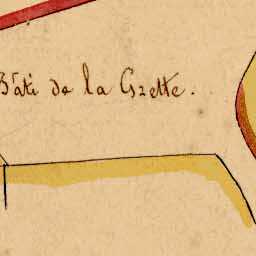 Bâti de la Gzette.